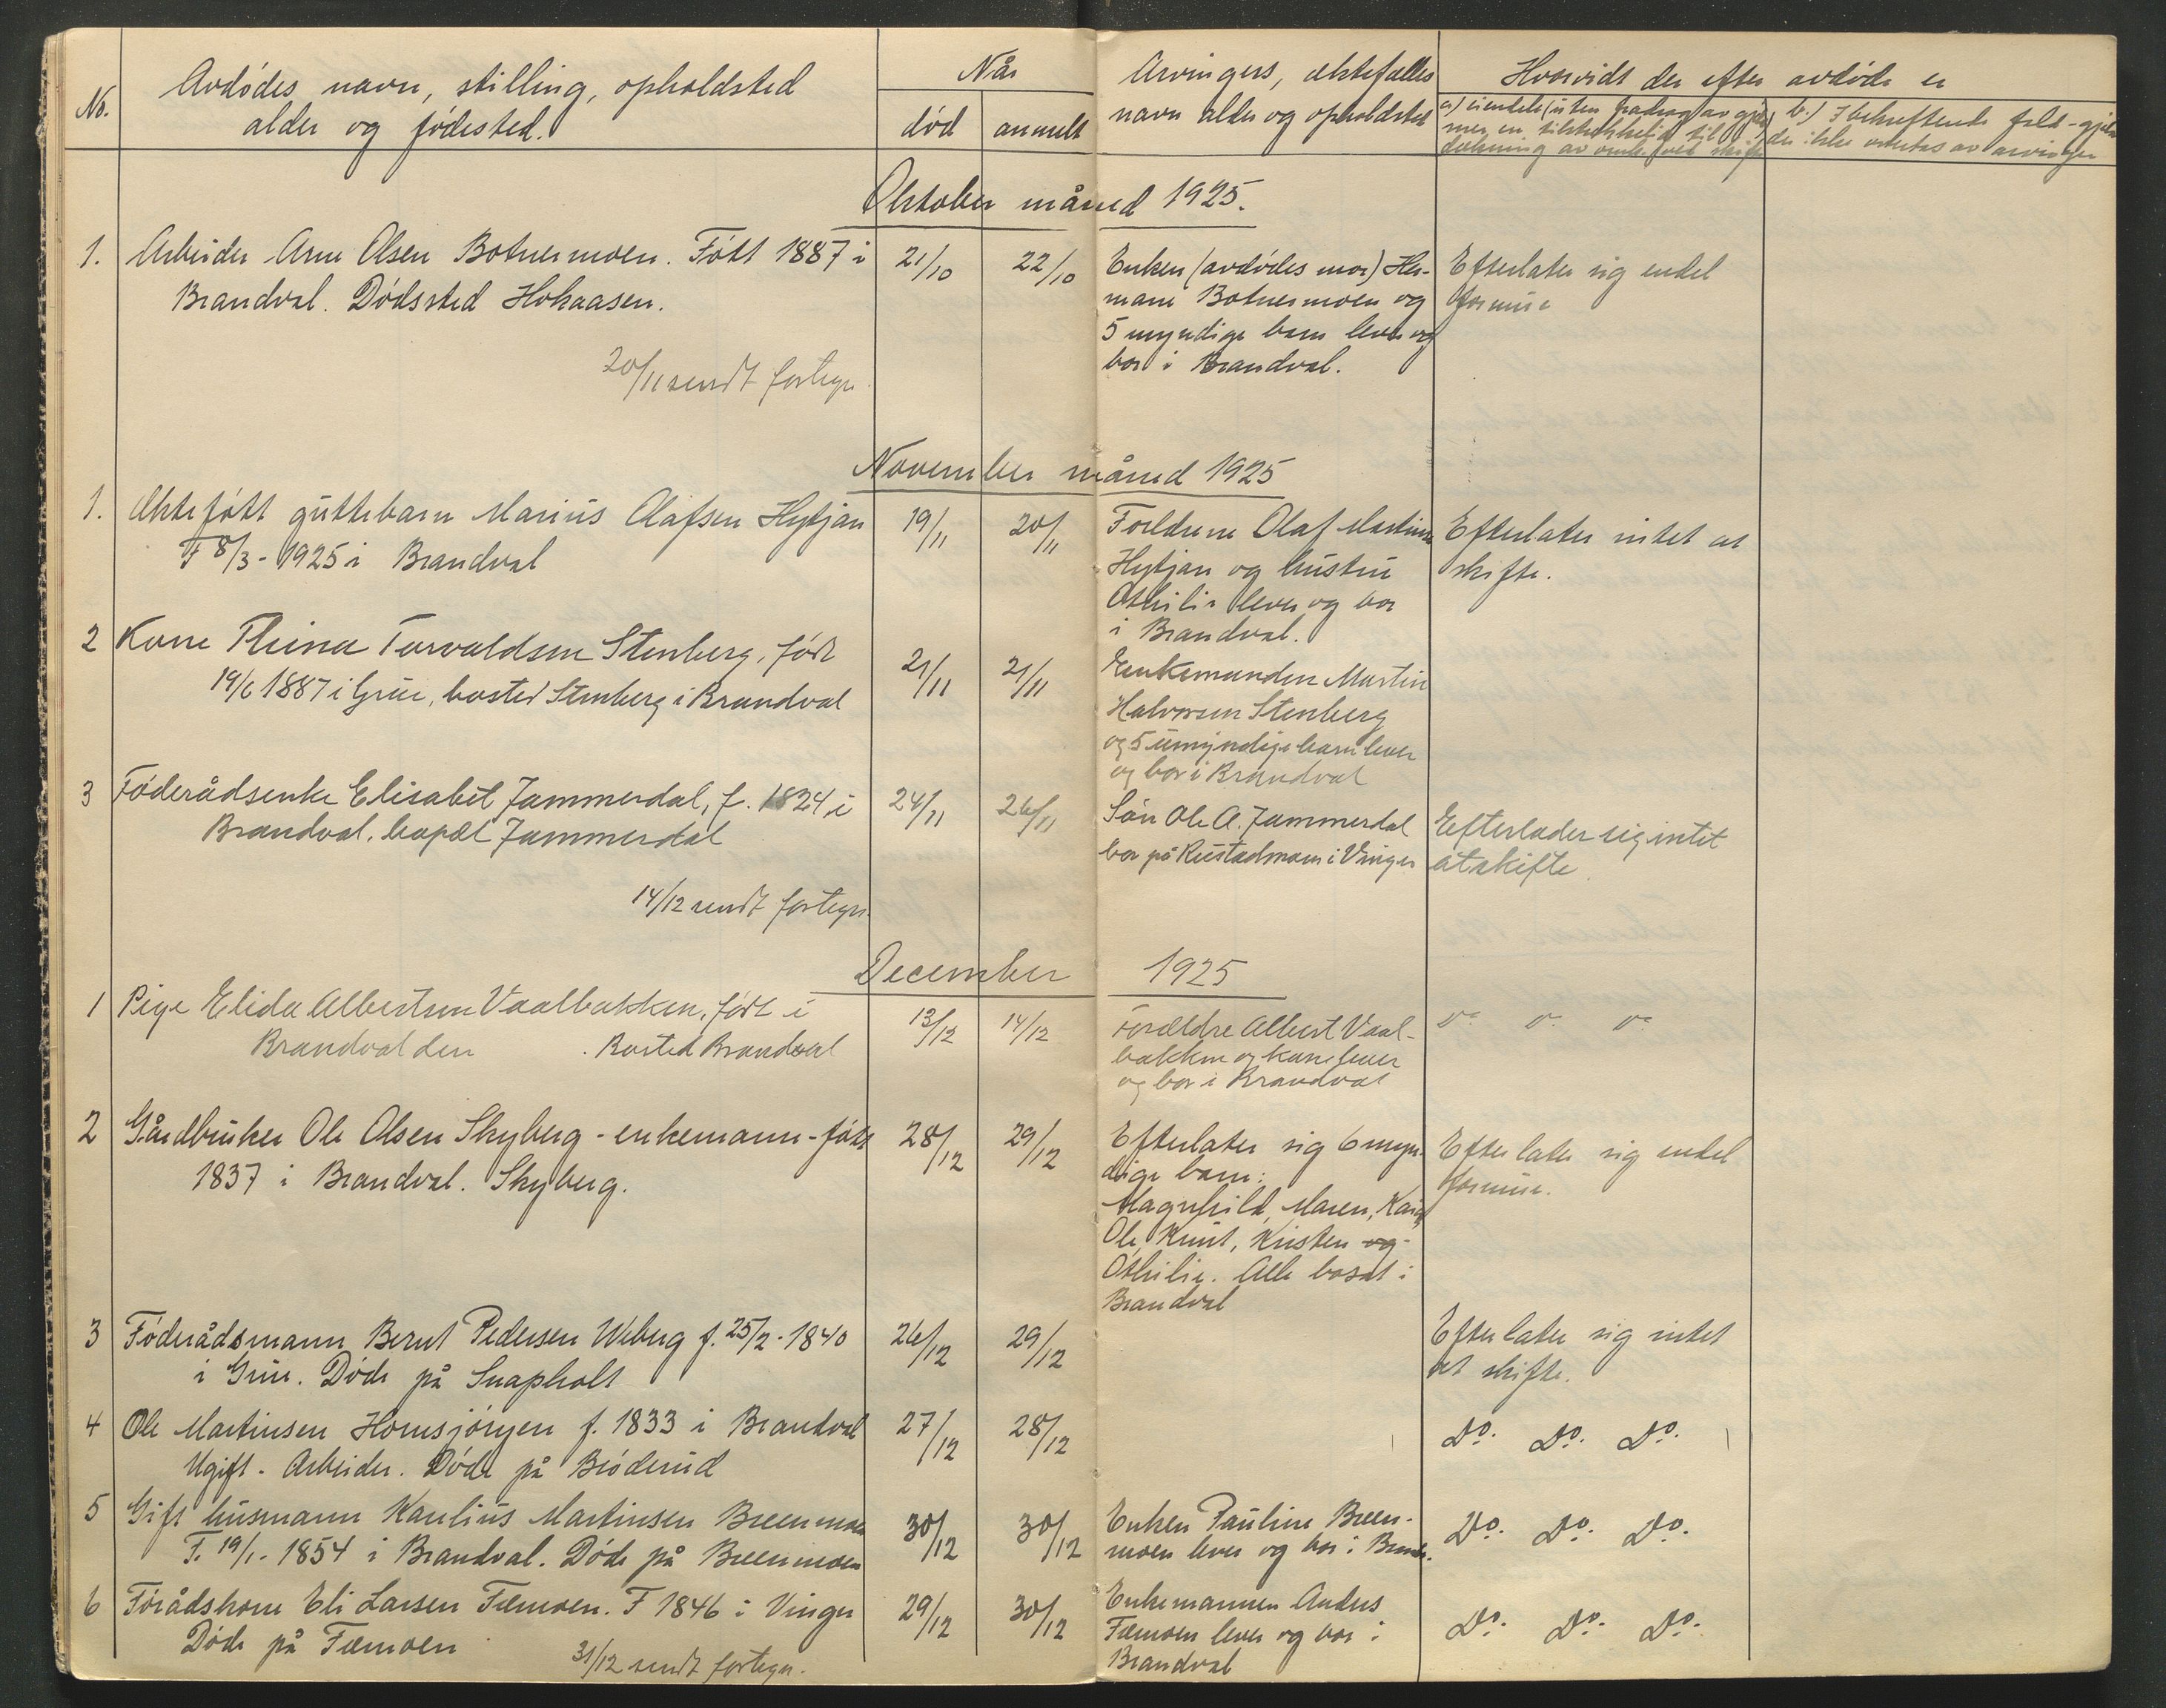 No.
Avdødes navn, stilling, opholdsted
alder og fødested.
Når
død
anmelt
Arvingers, ektefælles
navn alder og opholdsted
Hvorvidt der efter avdøde er
a) eiendele (uten fradrag av gjeld)
mer en tilstrekkelig til
dækning av omk. ved skifte
b.) I bekræftende fald - gjeld
der ikke vedtas av arvinger
Oktober måned 1925.
1.
Arbeider Arne Olsen Botnermoen. Født 1887 i
Brandval. Dødssted Hokaasen.
21/10
22/10
Enken (avdødes mor) Her-
mane Botnermoen og
5 myndige barn lever og
bor i Brandval.
Efterlater sig endel
formue
20/11 sendt fortegn.
November måned 1925
1.
Ektefødt guttebarn Marius Olafsen Hytjan
F 8/3 - 1925 i Brandval
19/11
20/11
Forldrene Olaf Martinsen
Hytjan og hustru
Othilie lever og bor
i Brandval.
Efterlater intet at
skifte.
2
Kone Thina Torvaldsen Stenberg, født
19/6 1887 i Grue, bosted Stenberg i Brandval
21/11
21/11
Enkemanden Martin
Halvorsen Stenberg
og 5 umyndige barn lever
og bor i Brandval
3
Føderådsenke Elisabet Jammerdal, f. 1824 i
Brandval, bopæl Jammerdal
24/11
26/11
Søn Ole A. Jammerdal
bor på Rustadmoen i Vinger
Efterlader sig intet
at skifte
14/12 sendt fortegn.
December 1925
1
Pige Elida Albertsen Vaalbakken, født i
Brandval den . Bosted Brandval
13/12
14/12
Forældre Albert Vaal-
bakken og kone lever
og bor i Brandval
Do Do Do
2
Gårdbruker Ole Olsen Skyberg - enkemann - født
1837 i Brandval. Skyberg.
28/12
29/12
Efterlater sig 6 myn-
dige barn:
Magnhild, Maren, Kari,
Ole, Knut, Kristen og
Othilie. Alle bosat i
Brandval
Efterlater sig endel
formue.
3
Føderådsmann Bernt Pedersen Weberg f. 25/2 - 1840
i Grue. Døde på Snapholt
26/12
29/12
Efterlater sig intet
at skifte.
4
Ole Martinsen Hornsjørgen f. 1833 i Brandval
Ugift. Arbeider. Døde på Brøderud
27/12
28/12
Do. Do. Do.
5
Gift husmann Karelius Martinsen Breenmoen
F. 19/1 - 1854 i Brandval. Døde på Breenmoen
30/12
30/12
Enken Pauline Breen-
moen lever og bor i Brandv.
Do. Do. Do.
6
Førådskone Eli Larsen Fæmoen. F 1846 i Vinger
Døde på Fæmoen
29/12
30/12
Enkemannen Anders
Fæmoen lever og bor i
Brandval
Do. Do. Do.
31/12 sendt fortegn.